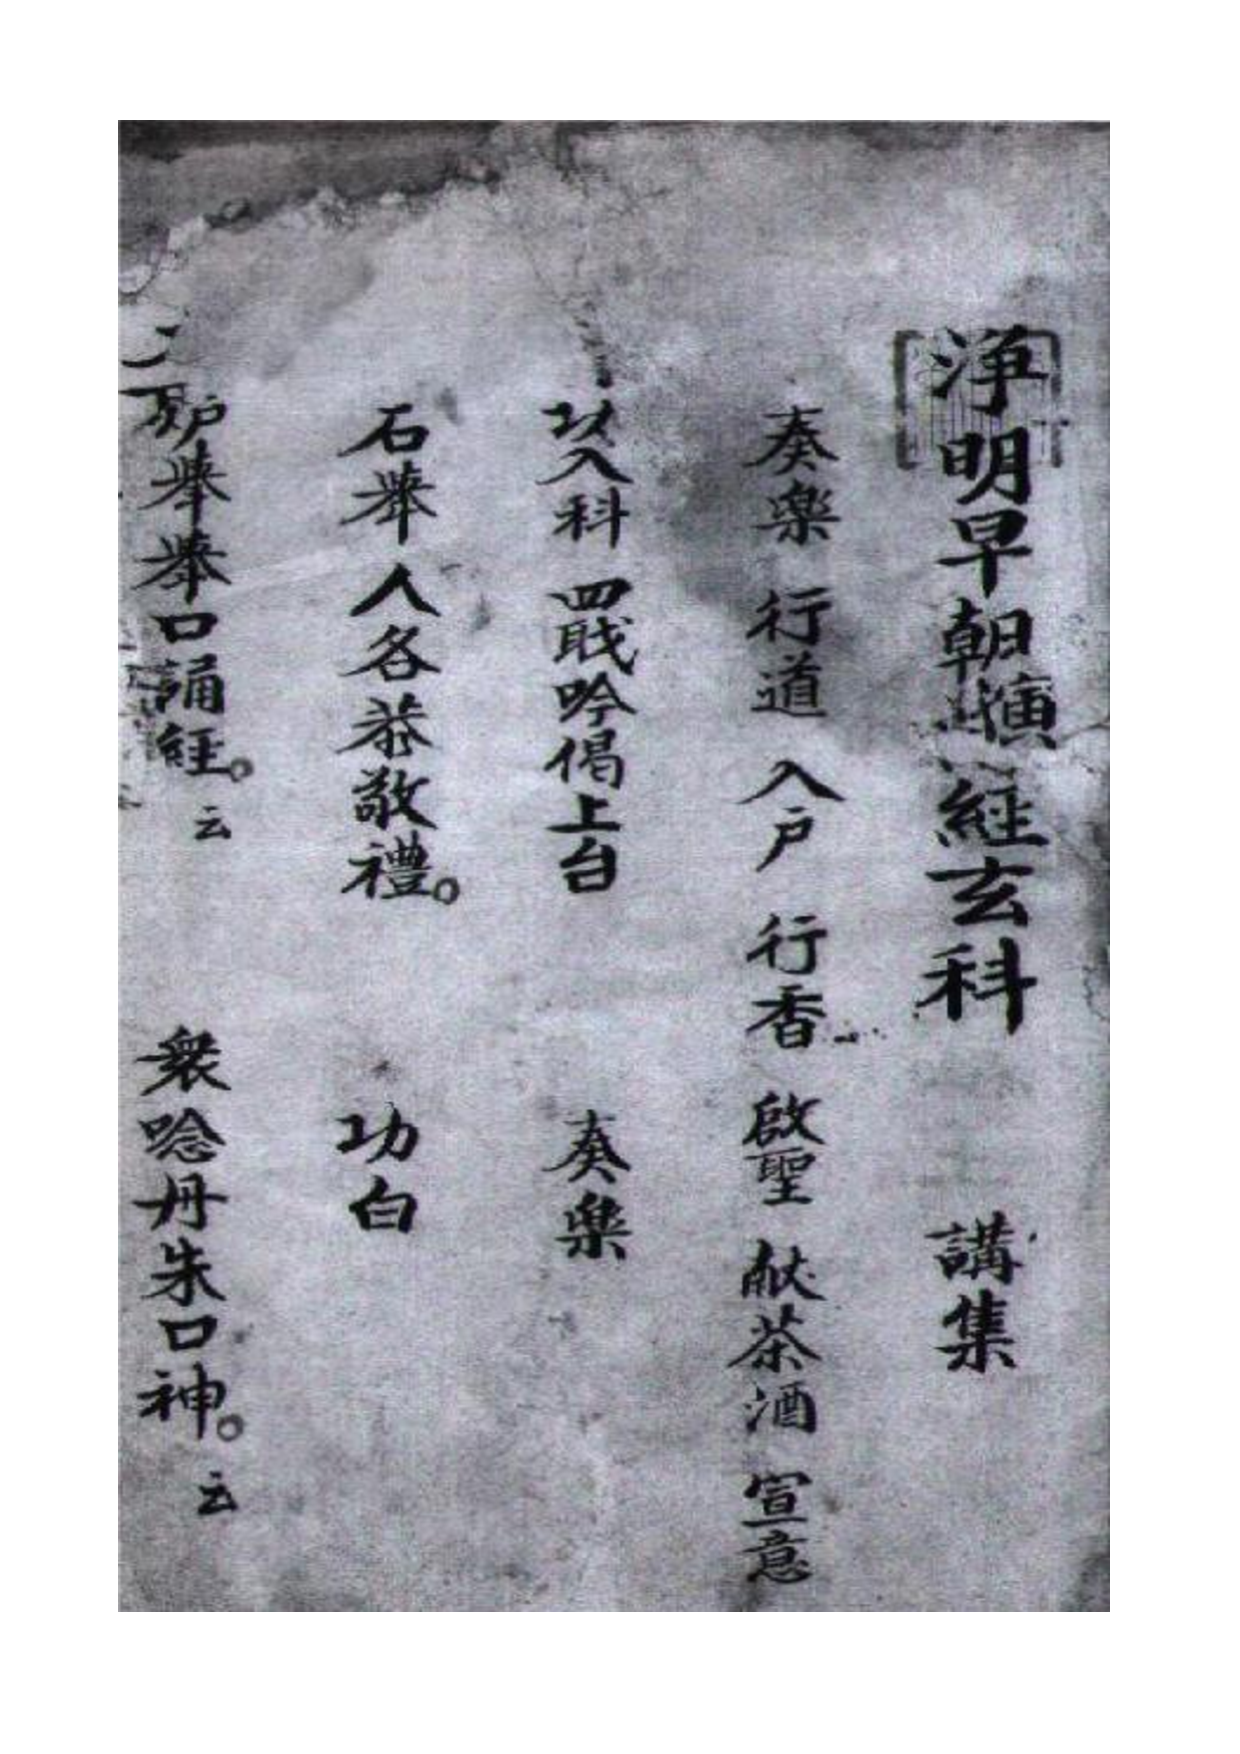 淨明早朝演經玄科 講集
奏樂 行道 入戶 行香 啟聖 献茶酒 宣意
以入科 四戝吟偈上台 奏樂
石舉人各恭敬禮。 功白
炉舉舉口誦經。云 衆唸丹朱口神。云